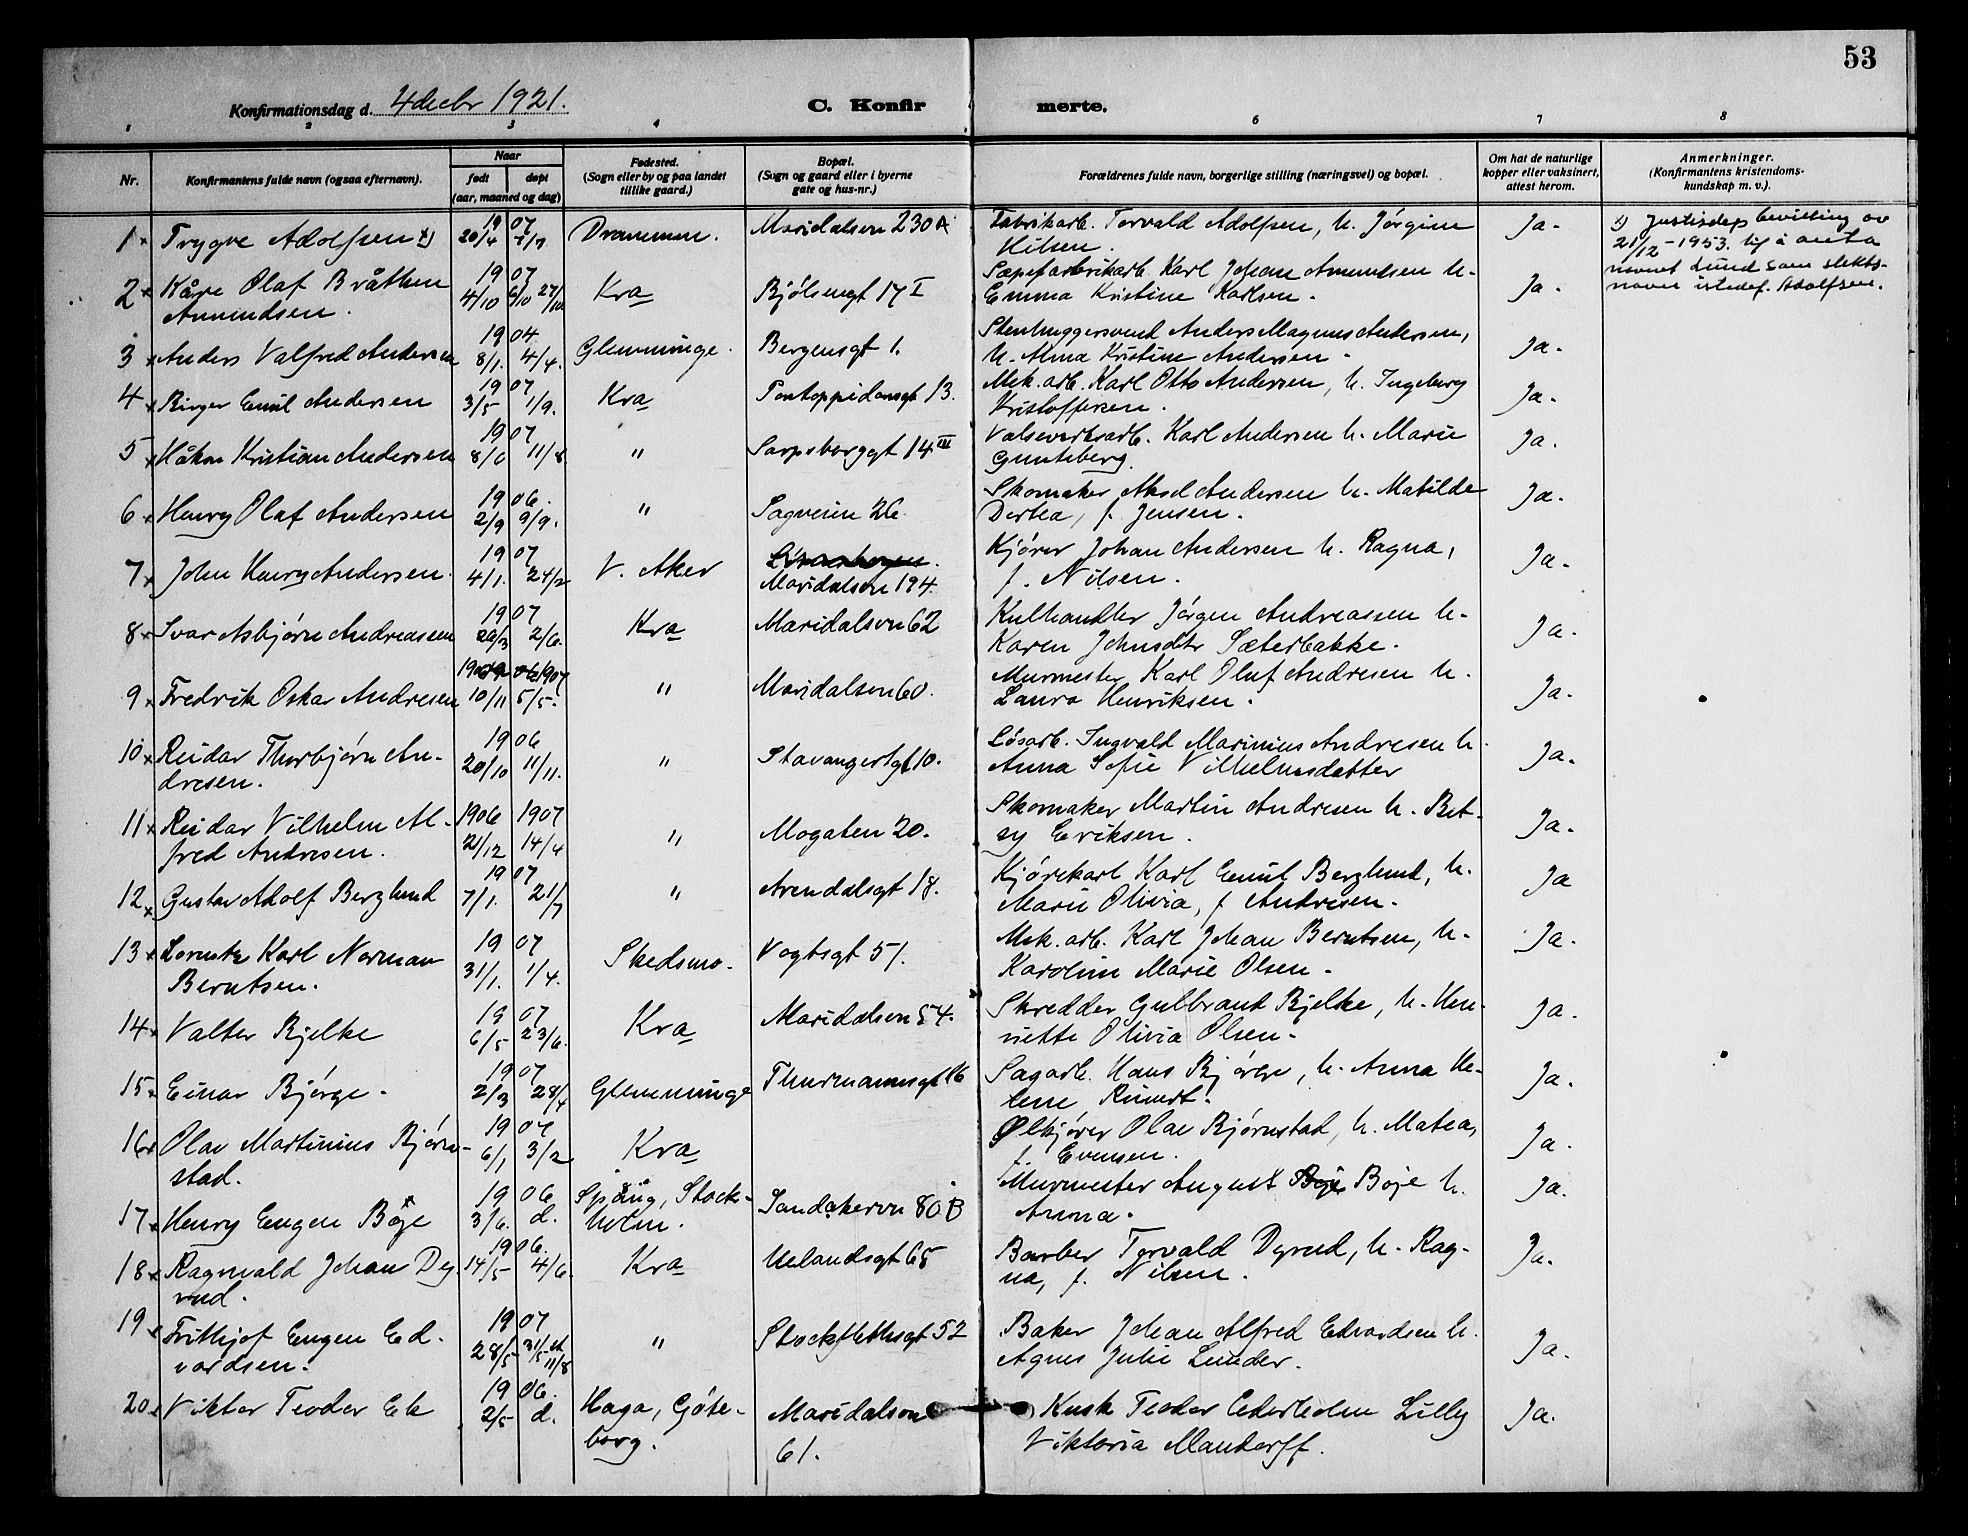 53
Konfirmationsdag d. 4 decbr 1921.
C. Konfir merte.
1 2 3 4 6 7 8
Nr.
Konfirmantens fulde navn (ogsaa efternavn).
Naar
født døpt
(aar, maaned og dag)
Fødested.
(Sogn eller by og paa landet
tillike gaard.)
Bopæl.
(Sogn og gaard eller i byerne
gate og hus-nr.)
Forældrenes fulde navn, borgerlige stilling (næringsvei) og bopæl.
Om hat de naturlige
kopper eller vaksinert,
attest herom.
Anmerkninger.
(Konfirmantens kristendoms-
kundskap m. v.).
1 Trygve Adolfsen x) 1907 20/4 7/7 Drammen. Maridalsvn 230 A. Fabrikarb. Torvald Adolfsen, h. Jørgine
Nilsen. Ja.
x) Justisdep bevilling av
21/12-1953. til å anta
navnet Lund som slekts-
navn istedf. Adolfsen.
2 Kåre Olaf Bråthen
Amundsen. 1907 4/10 6/10 27/10 Kra Bjølsengt 17 I Sæpefabrikarb. Karl Johan Amundsen h.
Emma Kristine Karlsen. Ja.
3 Anders Valfred Andersen 1904 8/1. 4/4. Glemminge. Bergensgt 1. Stenhuggersvend Anders Magnus Andersen,
h. Alma Kristine Andersen. Ja.
4 Birger Emil Andersen 1907 3/5 1/9. Kra Pontoppidansgt 13. Mek. arb. Karl Otto Andersen, h. Ingeborg
Kristoffersen. Ja.
5 Håkon Kristian Andersen 1907 8/6 11/8 " Sarpsborggt 14 III Valseverksarb. Karl Andersen h. Marie
Guntsberg. Ja.
6 Henry Olaf Andersen 1906. 2/9 9/9. " Sagveien 26. Skomaker Aksel Andersen h. Matilde
Dortea, f. Jensen. Ja.
7 John Henry Andersen. 1907 4/1. 24/2 V. Aker
Maridalsvn 194. Kjører Johan Andersen h. Ragna,
f. Nilsen. Ja.
8 Ivar Asbjørn Andreassen 1907 29/3 2/6. Kra Maridalsvn 62 Kulhandler Jørgen Andreassen h.
Karen Johnsdtr Sæterbakke. Ja.
9 Fredrik Oskar Andresen 1906 1907 10/11 5/5. " Maridalsvn 60. Murmester Karl Oluf Andresen h.
Laura Henriksen. Ja.
10 Reidar Thorbjørn An-
dresen. 1906 20/10 11/11. " Stavangergt 10. Løsarb. Ingvald Marinius Andresen h.
Anna Sofie Vilhelmsdatter Ja.
11 Reidar Vilhelm Al-
fred Andresen. 1906 1907 21/12 14/4 " Mogaten 20. Skomaker Martin Andresen h. Bet-
sy Eriksen. Ja.
12 Gustav Adolf Berglund 1907 7/1. 21/7 " Arendalsgt 18. Kjørekarl Karl Emil Berglund, h.
Marie Olivia, f. Andresen. Ja
13 Lorentz Karl Norman
Berntsen. 1907 31/1. 1/4. Skedsmo. Vogtsgt 51. Mek. arb. Karl Johan Berntsen, h.
Karoline Marie Olsen. Ja.
14 Valter Bjelke 1907 6/5 23/6. Kra Maridalsvn 54. Skredder Gulbrand Bjelke, h. Hen-
riette Olivia Olsen. Ja.
15 Einar Bjørge. 1907 2/3 28/4 Glemminge Thurmannsgt 16 Sagarb. Hans Bjørge, h. Anna He-
lene Ja.
16 Olav Martinius Bjørn-
stad. 1907 6/1 3/2 Kra Ølkjører Olav Bjørnstad, h. Matea,
f. Evensen. Ja.
17 Henry Eugen Böje 1906 3/6. d. Spånga, Stock-
holm. Sandakervn 80 B Murmester August Böje h.
Anna. Ja.
18 Ragnvald Johan Dy-
rud. 1906. 14/5 4/6. Kra Uelandsgt 65 Barber Torvald Dyrud, h. Rag-
na, f. Nilsen. Ja.
19 Frithjof Eugen Ed-
vardsen. 1907 28/5 31/5 st 11/8 " Stockflethsgt 52 Baker Johan Alfred Edvardsen h.
Agnes Julie Lunder. Ja.
20 Viktor Teodor Ek 1906. 2/5 d. Haga, Göte-
borg. Maridalsvn
61. Kusk Teodor Cederholm Lilly
Viktoria Ja.